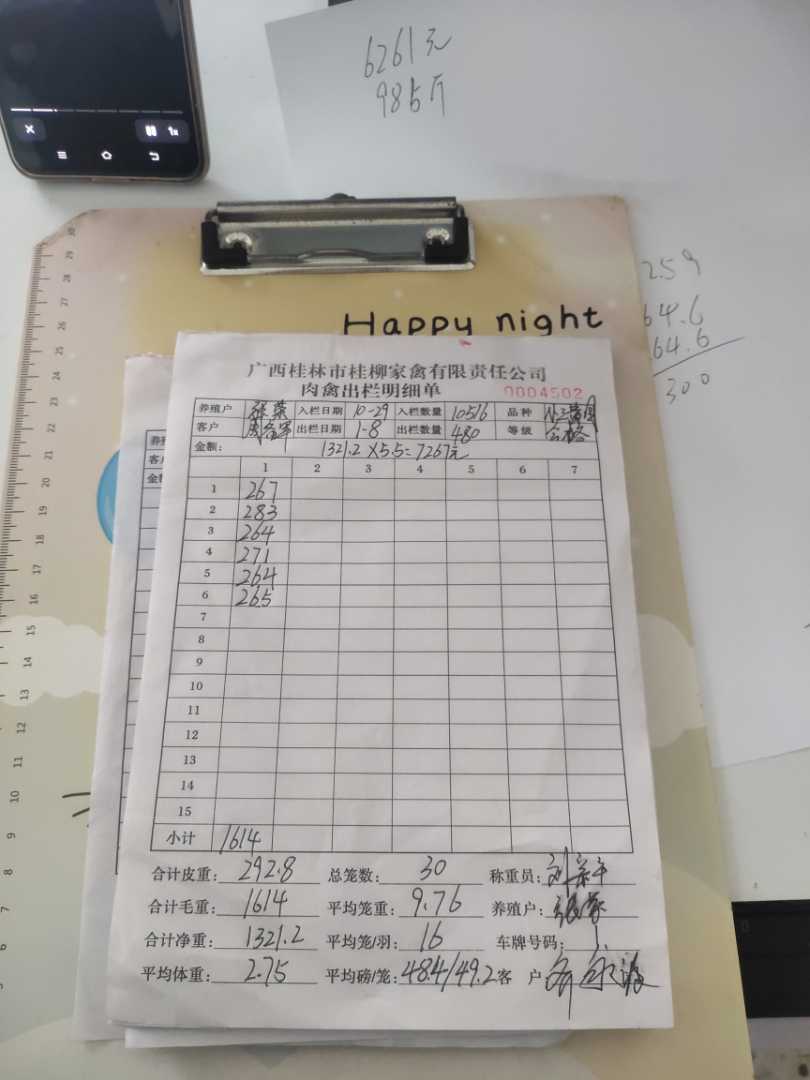 6261元
985斤
1x
Happy night
2.59
64.6
64.6
300
广西桂林市桂柳家禽有限责任公司
肉禽出栏明细单
0004502
养殖户 张蒙 入栏日期 10-29 入栏数量 10516 品种
客户 出栏日期 1-8 出栏数量 480 等级 合格
金额: 1321.2×5.5=7267元
1 2 3 4 5 6 7
1 267
2 283
3 264
4 271
5 264
6 265
7
8
9
10
11
12
13
14
15
小计 1614
合计皮重: 292.8 总笼数: 30 称重员:
合计毛重: 1614 平均笼重: 9.76 养殖户: 张蒙
合计净重: 1321.2 平均笼/羽: 16 车牌号码:
平均体重: 2.75 平均磅/笼: 48.4/49.2 客 户